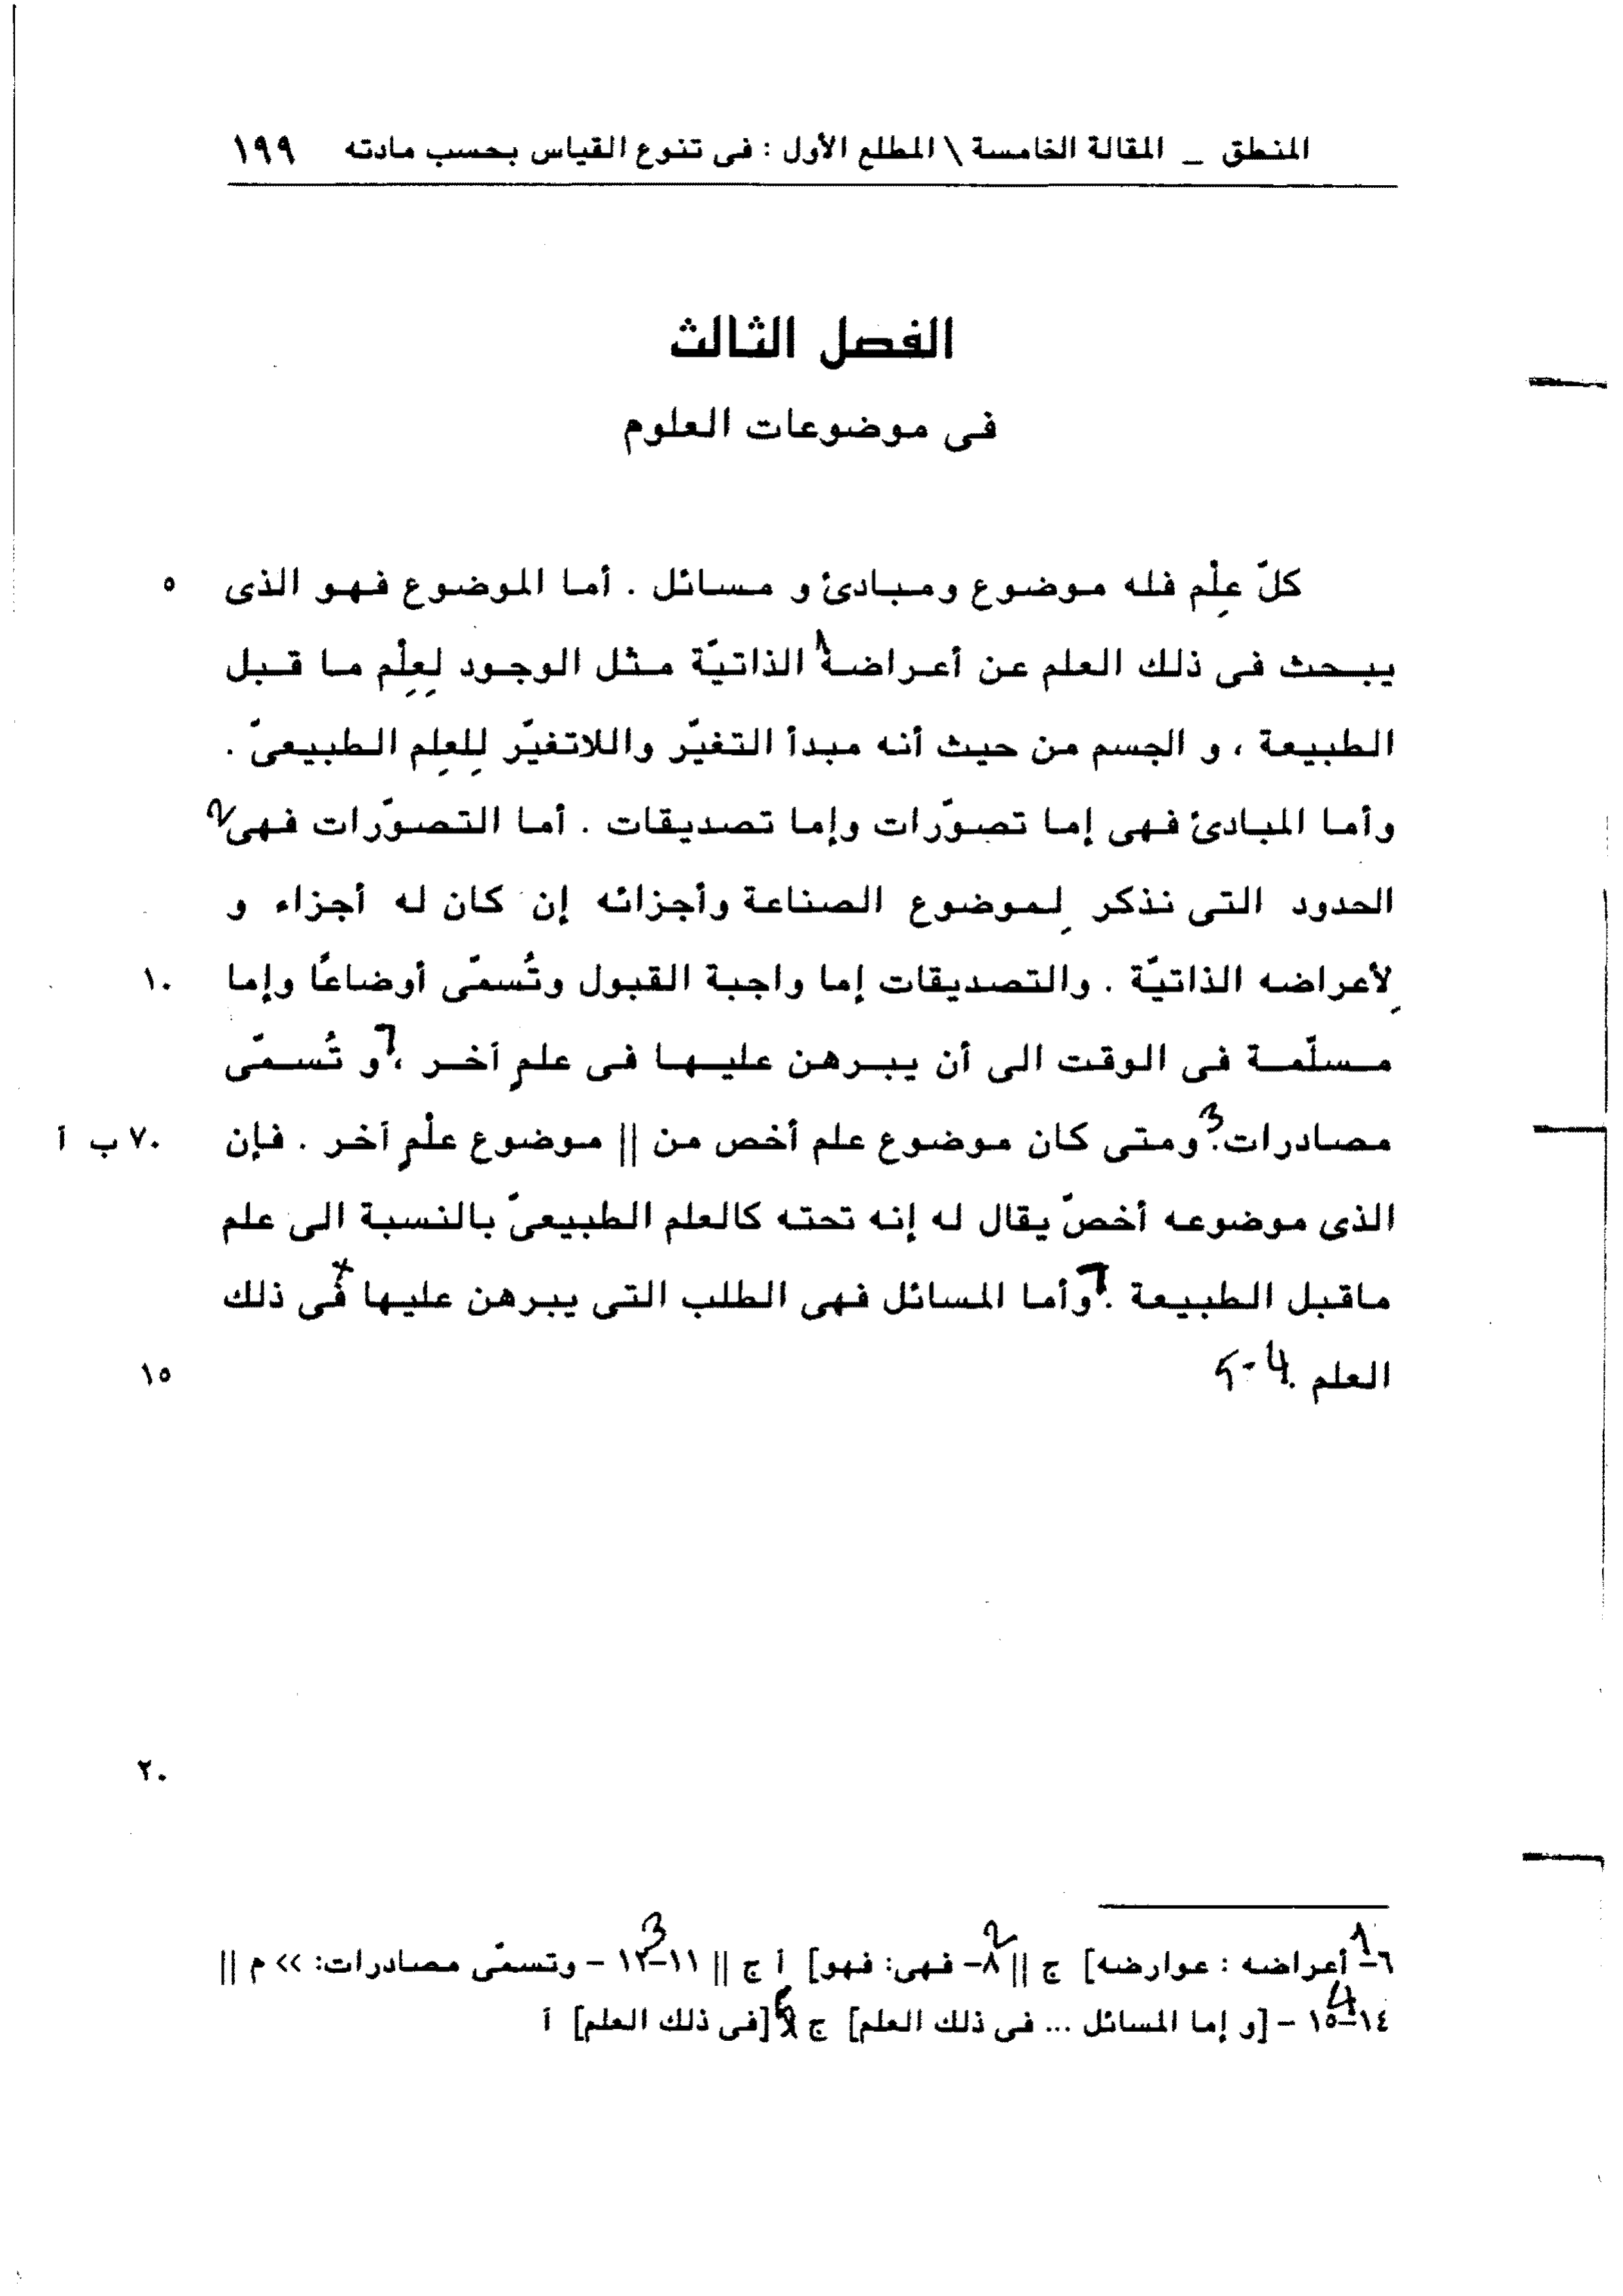 المنطق _ المقالة الخامسة \ المطلع الأول : فى تنوع القياس بحسب مادته ١٩٩
الفصل الثالث
فى موضوعات العلوم
كلّ عِلْم فله موضوع ومبادئ و مسائل . أما الموضوع فهو الذى ٥
يبحث فى ذلك العلم عن أعراضه١ الذاتيّة مثل الوجود لِعِلْم ما قبل
الطبيعة ، و الجسم من حيث أنه مبدأ التغيّر واللاتغيّر لِلعِلم الطبيعىّ .
وأما المبادئ فهى إما تصوّرات وإما تصديقات . أما التصوّرات فهى٢
الحدود التى نذكر لِموضوع الصناعة وأجزائه إن كان له أجزاء و
لِأعراضه الذاتيّة . والتصديقات إما واجبة القبول وتُسمّى أوضاعًا وإما ١٠
مسلّمة فى الوقت الى أن يبرهن عليها فى علمٍ آخر ، و تُسمّى
مصادرات.3 ومتى كان موضوع علم أخص من || موضوع علْمٍ آخر . فإن ٧٠ ب أ
الذى موضوعه أخصّ يقال له إنه تحته كالعلم الطبيعىّ بالنسبة الى علم
ماقبل الطبيعة . وأما المسائل فهى الطلب التى يبرهن عليها فى ذلك
العلم . 4-5 ١٥
٢٠
٦- أعراضه : عوارضه] ج || ٨- فهى: فهو] أ ج || ١١-١٢ - وتسمّى مصادرات: >> م ||
١٤-١٥ - [و إما المسائل ... فى ذلك العلم] ج [فى ذلك العلم] أ